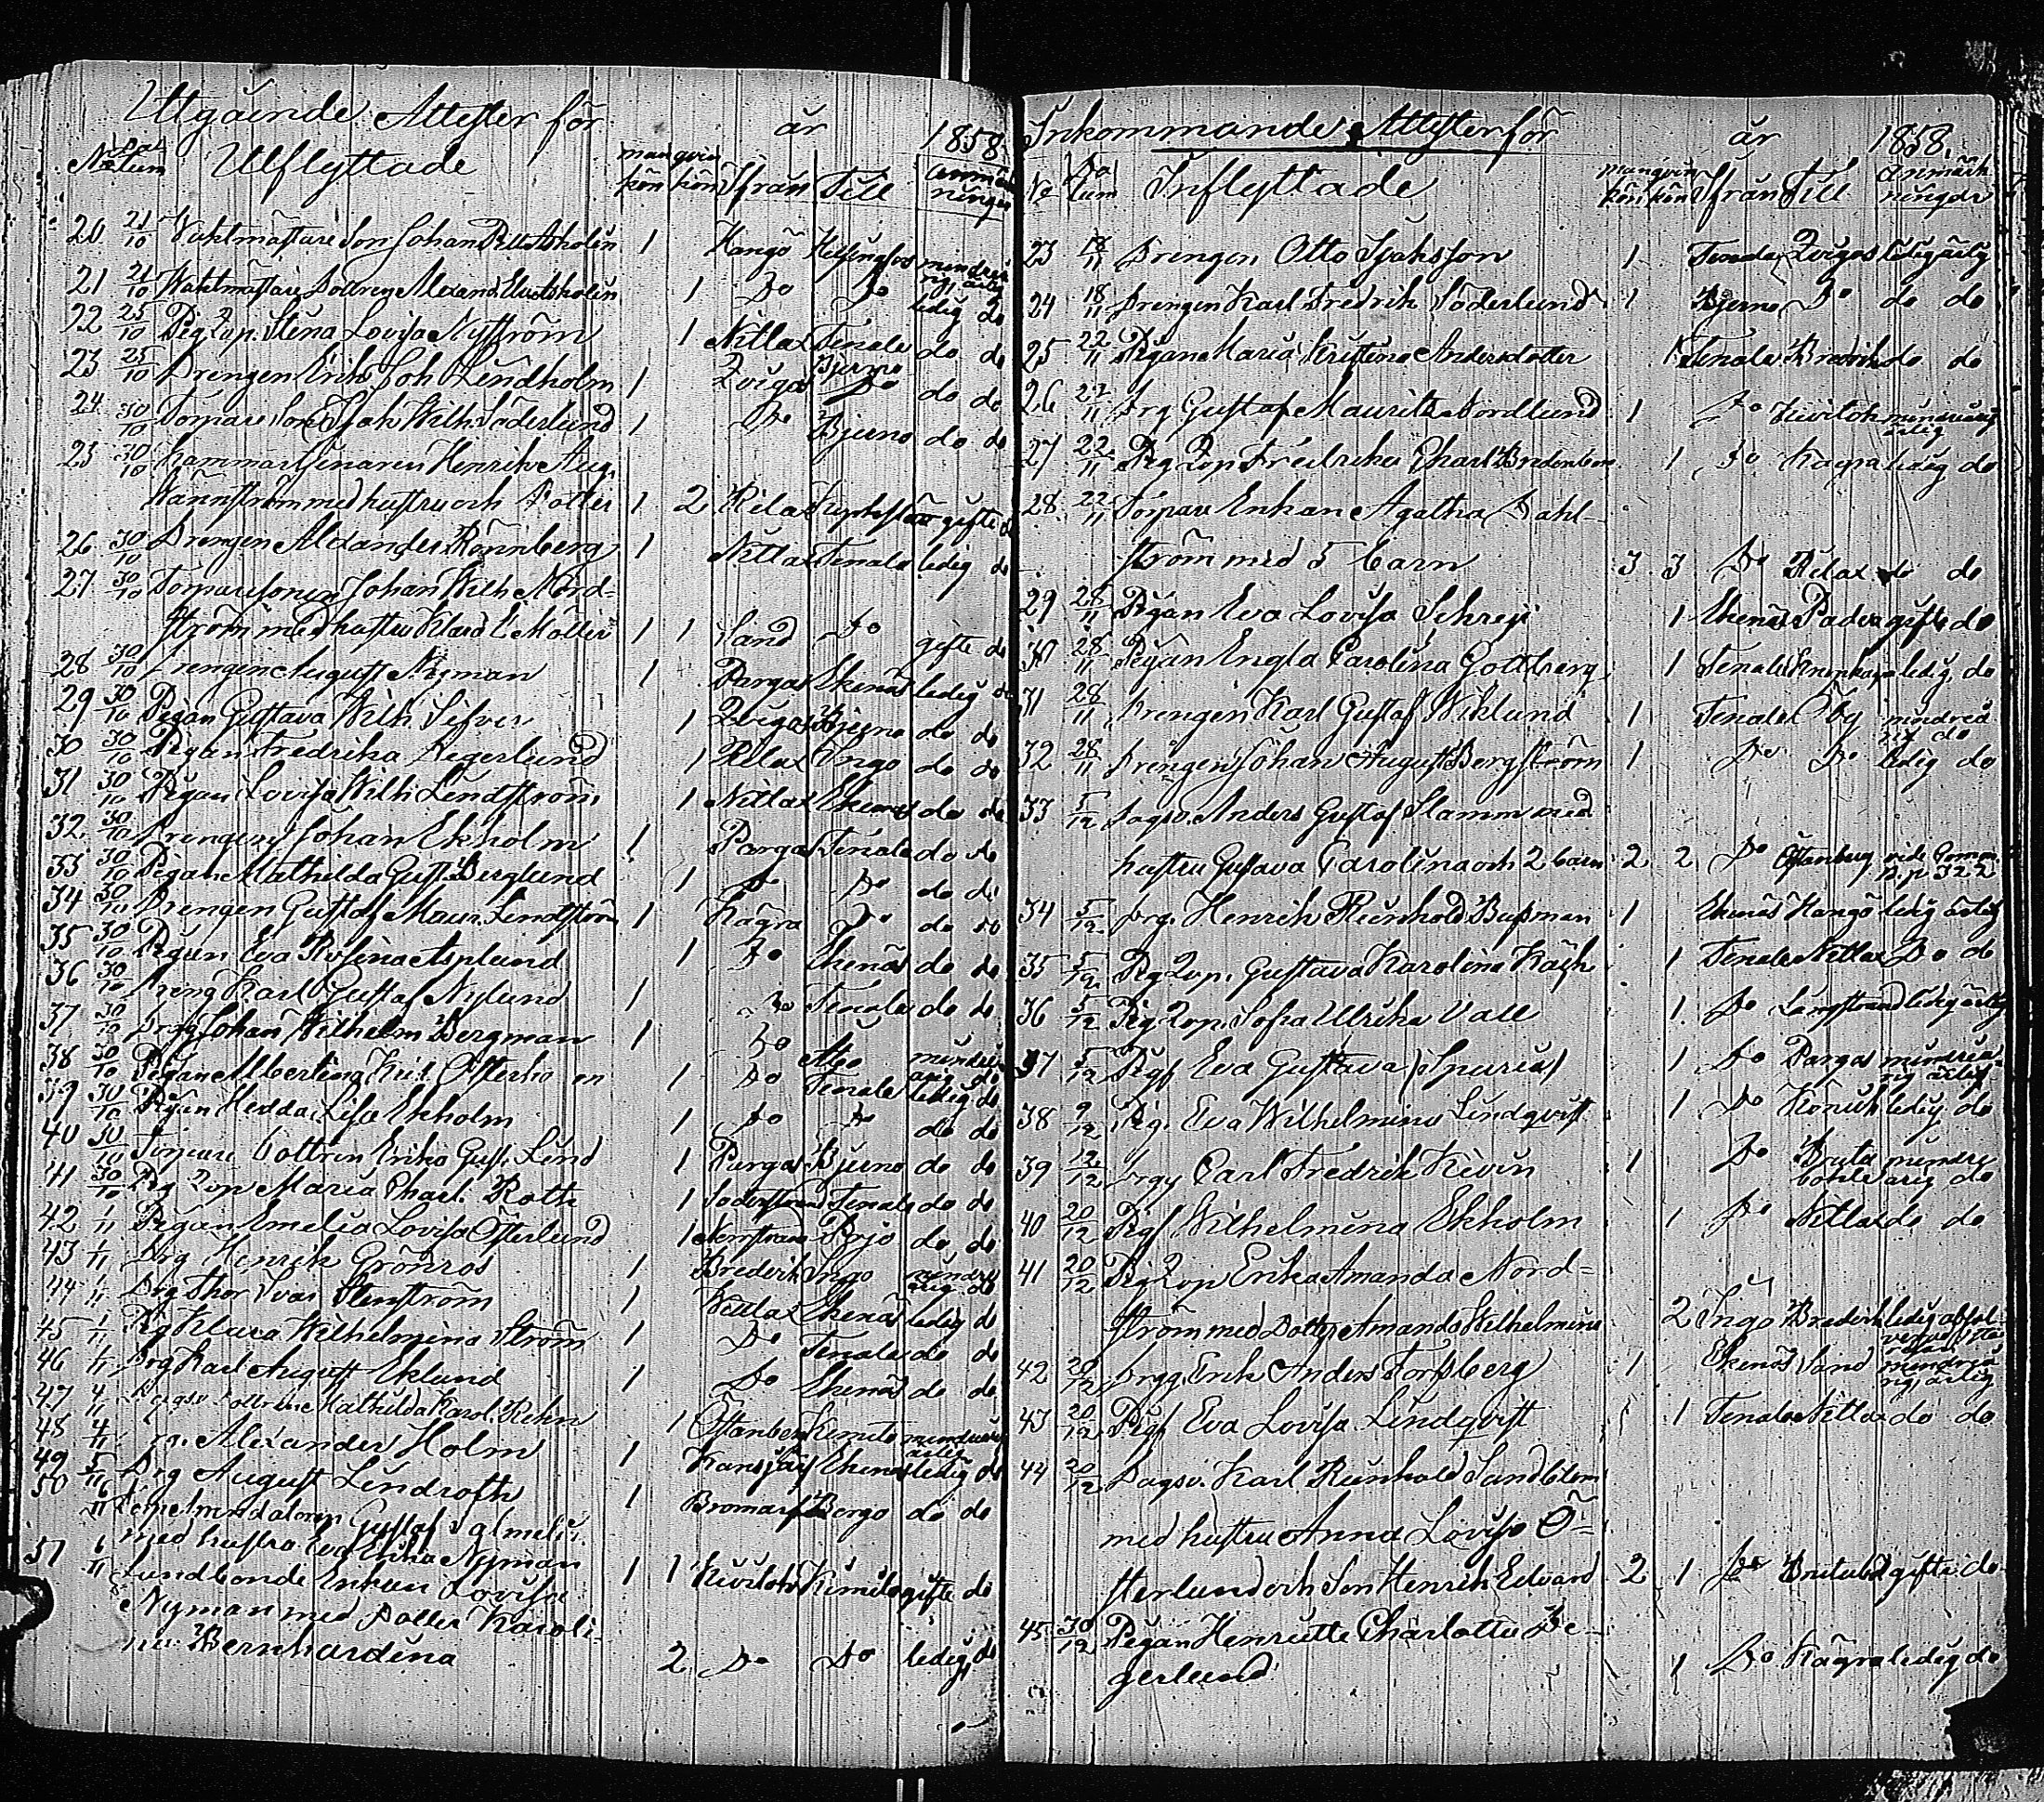 Utgående Attester för år 1858
No Datum Utflyttade mankön qvinkön Ifrån Till Anmärkningar
20 21/10 Vaktmästare Son Johan 1 Hangö Helsingfors mindreårig, ärlig
21 21/10 Waktmästare Dottren 1 Do Do ledig do
22 25/10 Pig Lovisa Nyström 1 Nitlax Tenala do do
23 25/10 Drengen Erik Joh Lindholm 1 Bjerno do do
24 30/10 Torpare Son Isak Wilh. Söderlund 1 Do Bjerno do do
25 30/10 Henrik Aug.
Wännström med hustru och Dotter 1 2 Rilax gifte do
26 30/10 Drengen Alexander Rönnberg 1 Nitlax Tenala ledig do
27 30/10 Torparesonen Johan Wilh Nord-
ström med hustru Klara E Möller 1 1 Sand Do gifte do
28 30/10 Drengen August Nyman 1 Pargas Ekenäs ledig do
29 30/10 Pigan Gustava Wilh. Silver 1 Bjerno do do
30 30/10 Pigan Fredrika Degerlund 1 Rilax Ingo do do
31 30/10 Pigan Lovisa Wilh Lindström 1 Nitlax Ekenäs do do
32 30/10 Drengen Johan Ekholm 1 Pargas Tenala do do
33 30/10 Pigan Mathilda Gust. Berglund 1 Do Do do do
34 30/10 Drengen Gustaf Maur. Lindström 1 Kägra Do do do
35 30/10 Pigan Eva Rosina Asplund 1 Do Ekenäs do do
36 30/10 Dreng Karl Gustaf Nylund 1 Do Tenala do do
37 30/10 Drg Johan Wilhelm Bergman 1 Do Åbo mindreårig do
38 30/10 Pigan Albertina 1 Do Tenala ledig do
39 30/10 Pigan Hedda Lisa Ekholm 1 Do Do do do
40 30/10 Torpare Dottren Erika Gust. Lind 1 Pargas Bjerno do do
41 30/10 Pig Maria Charl. Roth 1 Söderstrand Tenala do do
42 1/11 Pigan Emelia Lovisa Österlund 1 Norrstrand Pojo do do
43 1/11 Drg Henrik Grönros 1 Bredvik Ingo mindreårig do
44 1/11 Drg Thor Ivar Stenström 1 Nitlax Ekenäs ledig do
45 1/11 Pig Klara Wilhelmina Ström 1 Do Tenala do do
46 1/11 Drg Karl August Eklund 1 Do Ekenäs do do
47 4/11 Dagsv. Dottren Mathilda Karol. Rehn 1 Östanberg Kimito mindreårig ärlig
48 4/11 Alexander Holm 1 Ekenäs ledig do
49 5/11 Drg August Lindroth 1 Bromarf Borgo do do
50 6/11 Gustaf
med hustru Eva Erika Nyman 1 1 Kivitok Kimito gifte do
51 6/11 Lundbonde Enkan Lovisa
Nyman med Dotter Karoli-
na Bernhardina 2 Do Do ledig do
Inkommande Attester för år 1858.
No Datum Inflyttade mankön qvinkön Ifrån Till Anmärkningar
23 18/11 Drengen Otto Isaksson 1 Tenala ledig ärlig
24 18/11 Drengen Karl Fredrik Söderlund 1 Bjerno Do do do
25 22/11 Pigan Maria Kristina Andersdotter 1 Tenala Bredvik do do
26 22/11 Drg Gustaf Mauritz Nordlund 1 Do Kivitok mindreårig ärlig
27 22/11 Pig Fredrika Charl. 1 Do Kägra ledig do
28 22/11 Torpare Enkan Agatha Dahl-
ström med 5 barn 3 3 Do Rilax do do
29 28/11 Pigan Eva Lovisa 1 Ekenäs Padva gifte do
30 28/11 Pigan Engla Carolina Gottberg 1 Tenala ledig do
31 28/11 Drengen Karl Gustaf Wiklund 1 Tenala By mindreårig do
32 28/11 Drengen Johan August Bergström 1 Do Do ledig do
33 5/12 Dagsv. Anders Gustaf Stamm med
hustru Gustava Carolina och 2 barn 2 2 Do Östanberg vide Comm. B. p 322
34 5/12 Drg. Henrik Reinhold Bussman 1 Ekenäs Hangö ledig ärlig
35 5/12 Pig Gustava Karolina 1 Tenala Nitlax Do do
36 5/12 Pig Sofia Ulrika Vall 1 Do Långstrand ledig ärlig
37 5/12 Pig Eva Gustava (Spuria) 1 Do Pargas mindreårig ärlig
38 9/12 Pig. Eva Wilhelmina Lindqvist 1 Do ledig do
39 12/12 Drg Carl Fredrik Kivin 1 Do mindreårig do
40 20/12 Pig Wilhelmina Ekholm 1 Do Nitlax do do
41 20/12 Pig Erika Amanda Nord-
ström med Dotter Amanda Wilhelmina 2 Ingo Bredvik ledig
42 20/12 Drg Erik Anders Forssberg 1 Ekenäs Sand mindreårig ärlig
43 20/12 Pig Eva Lovisa Lindqvist 1 Tenala Nitlax do do
44 20/12 Dagsv. Karl Reinhold Sandblom
med hustru Anna Lovisa Ö-
sterlund och Son Henrik Edvard 2 1 Do gifte do
45 30/12 Pigan Henriette Charlotta De-
gerlund 1 Do Kägra ledig do